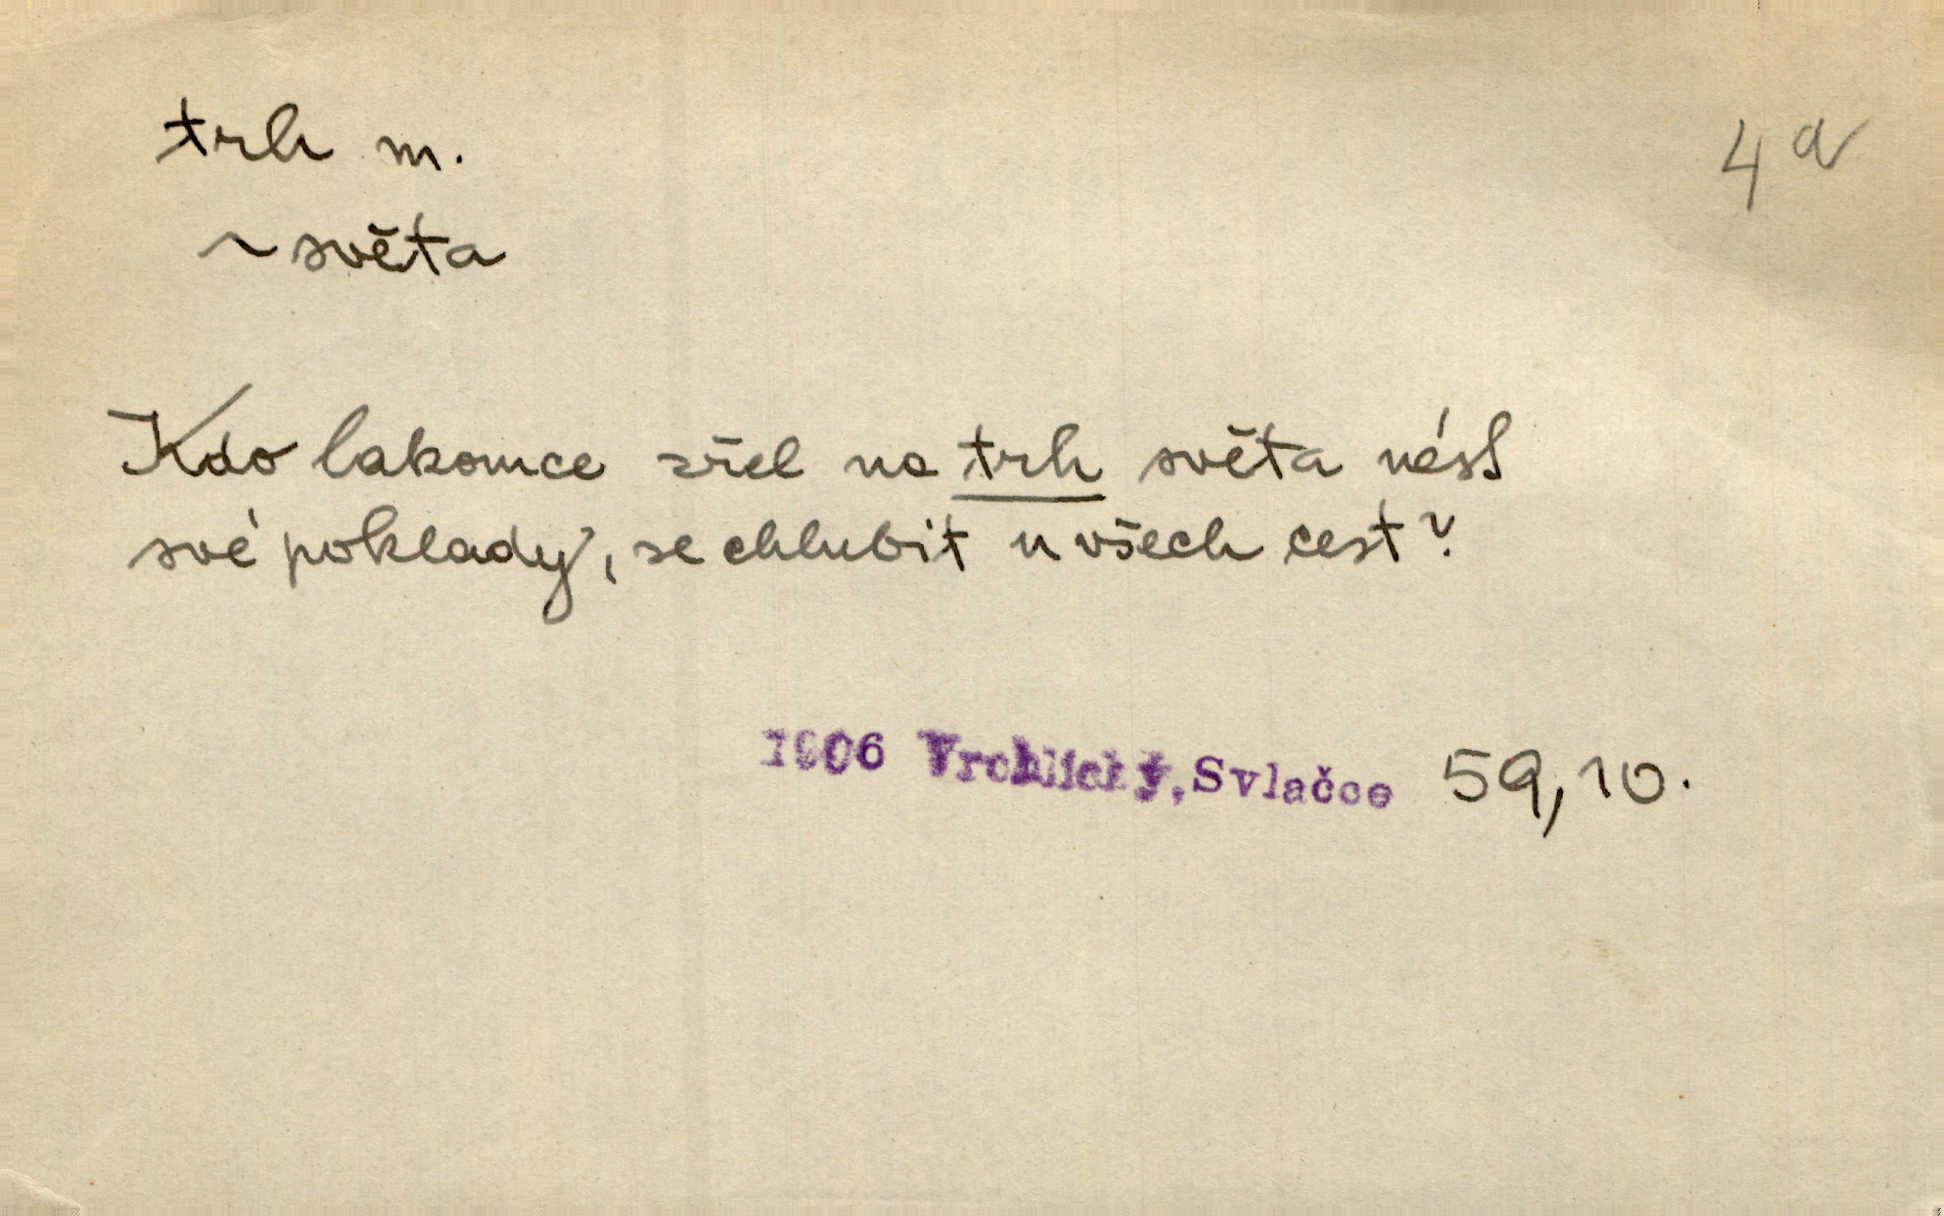 trh m.
4a
~ světa
Kdo lakomce zřel na trh světa nést
své poklady, se chlubit u všech cest?
1906 Vrchlický, Svlačce 59, 10.